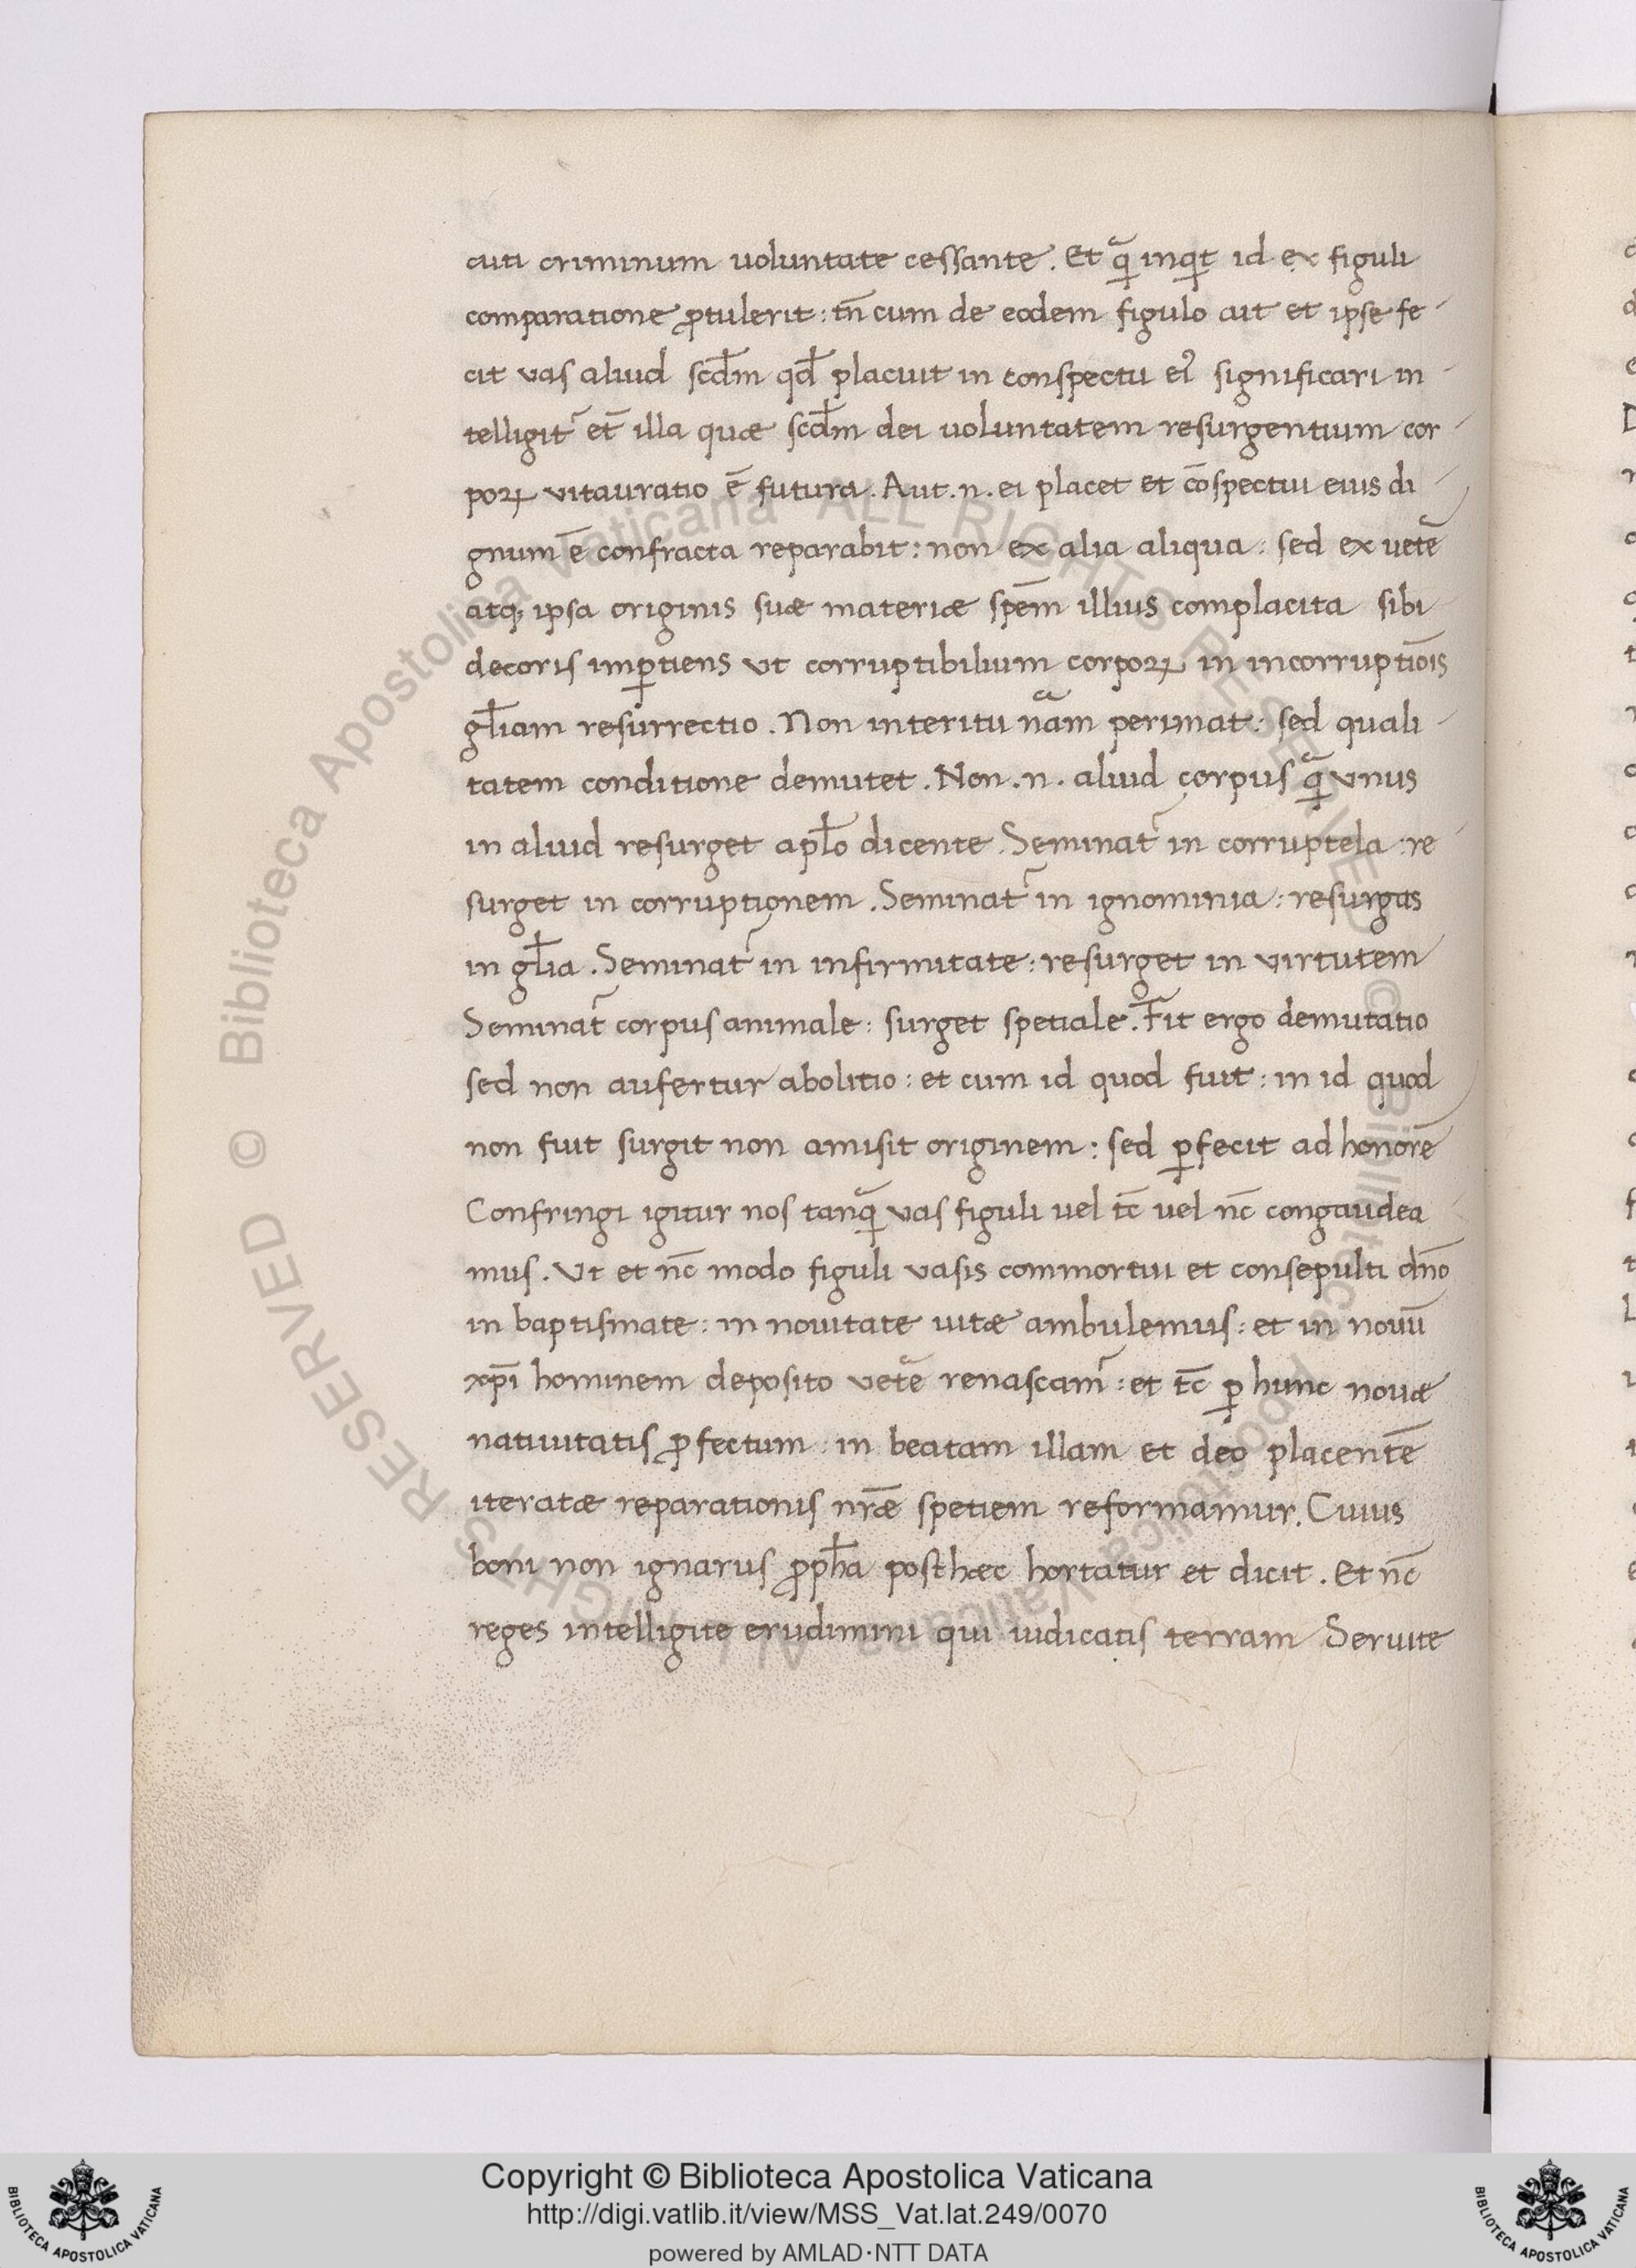 cuti criminum uoluntate cessante. Et qͣ inqͥt id ex figuli
comparatione ꝓtulerit: tn̄ cum de eodem figulo ait et ipse fe
cit vas aliud scd̄m qd̄ placuit in conspectu eiꝰ significari in
telligit᷑ et̄ illa quæ scd̄m dei uoluntatem resurgentium cor
poꝝ vitauratio ē futura. Aut .n. ei placet et cōspectui eius di
gnum ē confracta reparabit: non ex alia aliqua: sed ex uetē
atq; ipsa originis suæ materiæ spēm illius complacita sibi
decoris imꝑtiens vt corruptibilium corpoꝝ in incorruptiōis
gl̄iam resurrectio. Non interitu nāͣm perimat: sed quali
tatem conditione demutet. Non .n. aliud corpus qͣ vnus
in aliud resurget apl̄o dicente. Seminat᷑ in corruptela: re
surget in corruptionem. Seminat᷑ in ignominia: resurgas
in gl̄ia. Seminat᷑ in infirmitate: resurget in virtutem
Seminat᷑ corpus animale: surget spetiale. Fit ergo demutatio
sed non aufertur abolitio: et cum id quod fuit: in id quod
non fuit surgit non amisit originem: sed ꝑfecit ad honorē
Confringi igitur nos tanqͣ vas figuli uel tc̄ uel nc̄ congaudea
mus. Vt et nc̄ modo figuli vasis commortui et consepulti dn̄o
in baptismate: in nouitate uitæ ambulemus: et in nouū
xp̄i hominem deposito vetē renascam᷑: et tc̄ ꝑ hunc nouæ
natiuitatis ꝓfectum: in beatam illam et deo placentē
iteratæ reparationis nr̄æ spetiem reformamur. Cuius
boni non ignarus ꝓph̄a posthæc hortatur et dicit. Et nc̄
reges intelligite erudimini qui iudicatis terram Seruite
Copyright © Biblioteca Apostolica Vaticana
http://digi.vatlib.it/view/MSS_Vat.lat.249/0070
powered by AMLAD·NTT DATA
BIBLIOTECA APOSTOLICA VATICANA
BIBLIOTECA APOSTOLICA VATICANA
© Biblioteca Apostolica Vaticana ALL RIGHTS RESERVED © Biblioteca Apostolica Vaticana ALL RIGHTS RESERVED